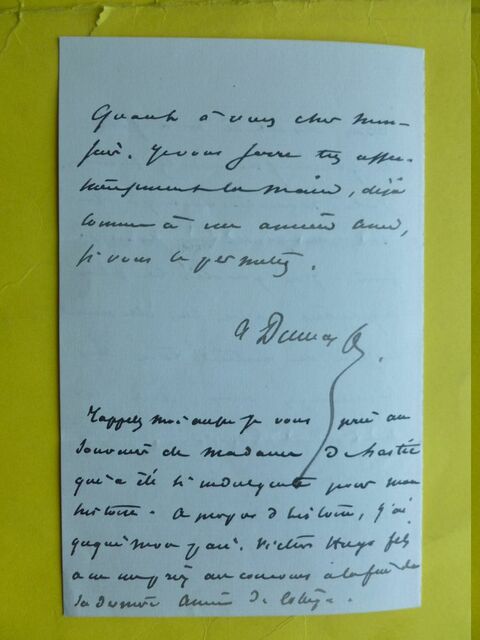 Quant à vous cher mon-
sieur. Je vous serre très affec-
tueusement la main, déjà
comme à un ancien ami,
si vous le permettez.
A Dumas fs.
Rappelez moi aussi je vous prie au
souvenir de madame
qui a été si indulgente pour mon
histoire. A propos d'histoire, j'ai
gagné mon pari. Victor Hugo fils
a eu un prix au concours à la fin de
sa dernière année de collège.